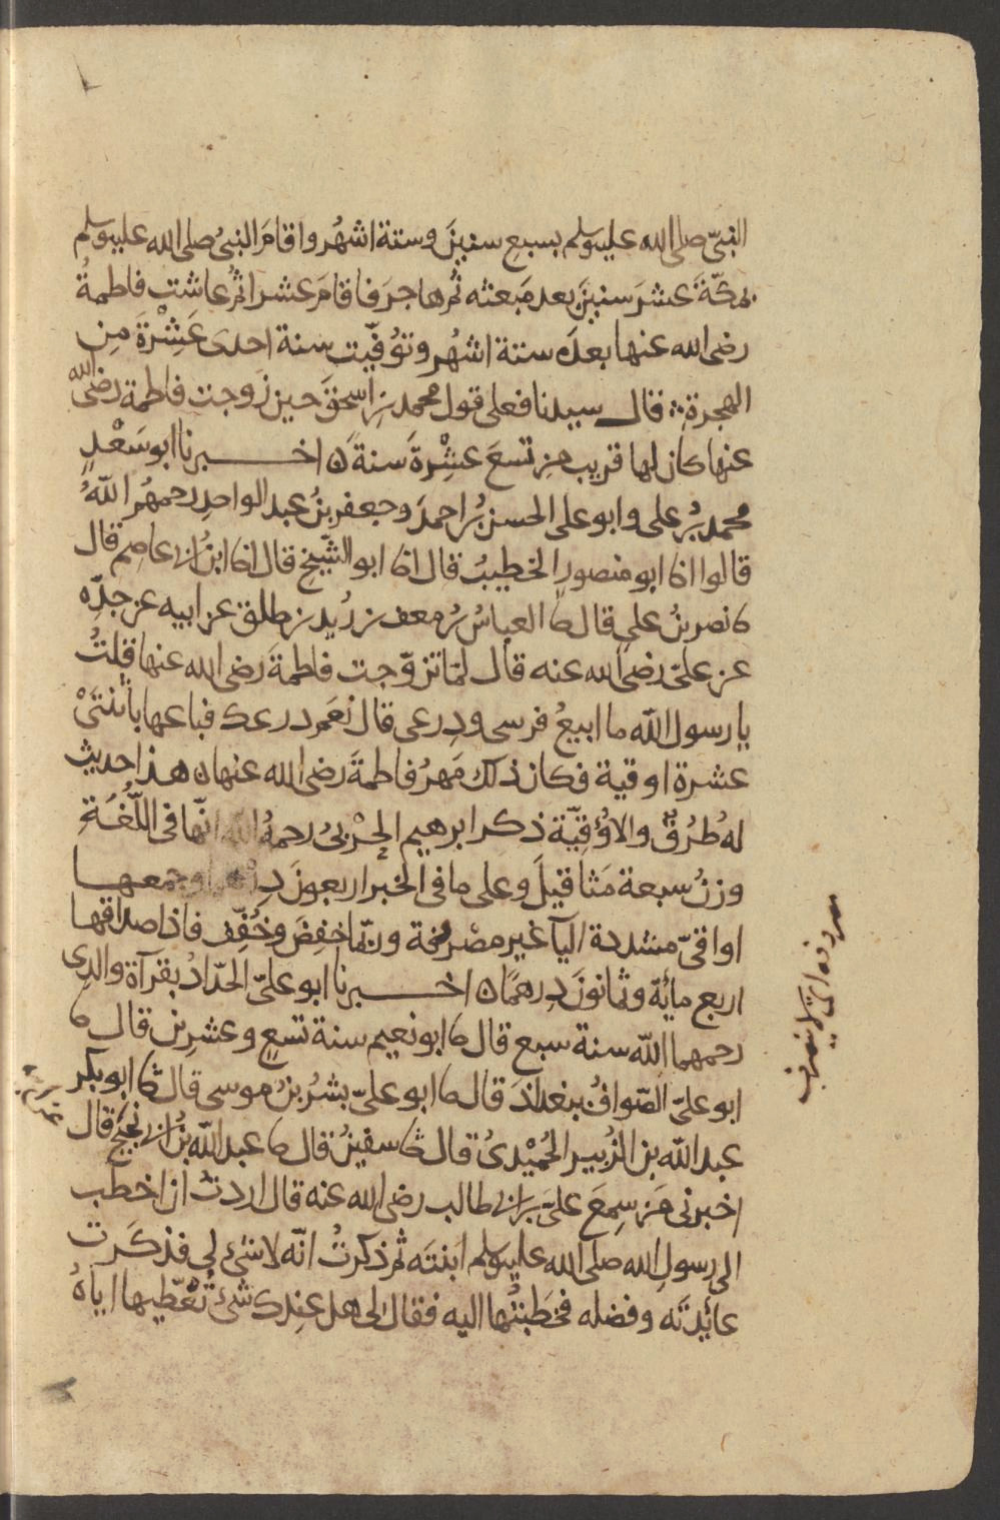 النبيّ صلى الله عليه وسلم بسبعِ سنينَ وستة اشهُر واقامَ النبيُّ صلى الله عليه وسلم
بمكّةَ عشرَ سنينَ بعد مَبعثه ثُم هاجرَ فاقامَ عشرا ثم عاشت فاطمةُ
رضى الله عنها بعدَه ستة اشهُر وتُوُفّيت سنة احدى عَشِرْةَ مِن
الهجرةِ قال سيدنا فعلى قول محمد بن اسحقَ حين زُوجت فاطمة رضى الله
عنها كان لها قريب من تسعَ عشِرْةَ سنةً ن اخبرنا ابو سَعْدٍ
محمد بنُ على وابو على الحسن بنُ احمدَ وجعفر بنُ عبد الواحدِ رحمهُم اللّهُ
قالوا انا ابو منصورٍ الخطيبُ قال انا ابو الشّيخِ قال انا ابنُ ابى عاصِم قال
نا نصر بنُ علىٍ قال نا العباسُ بنُ جعفر بن زيد بن طلق عن ابيه عن جدِّه
عن علىّ رضى الله عنه قال لمّا تزوّجت فاطمةَ رضى الله عنها قلتُ
يا رسول اللّه ما ابيعُ فرسى او درعى قال نعم درعك فباعها باثنتَىْ
عشرة اوقية فكان ذلك مَهرُ فاطمةَ رضى الله عنها ن هذا حديث
له طُرُقٌ والاُوْقيّة ذكر ابرهيم الحَرْبىُّ رحمهُ الله انّها فى اللُّغَةِ
وزنُ سبعة مَثاقيلَ وعلى ما فى الخبر اربعونَ درهما وجمعها
اواقىّ مشددة اليآ غير مصْرُوفة وربّما خفِضَ وخُفِّف فاذا صداقها
اربع مائة وثمانونَ درهمًا ن اخبرنا ابو علىّ الحدّادُ بقرآة والدى
رحمهما اللّه سنة سبع قال نا ابو نعيم سنة تسعٍ وعشرين قال نا
ابو علىّ الصّوافُ ببغداذَ قال نا ابو علىّ بشرُ بنُ موسى قال ثنا ابو بكر
عبد اللّه بن الزُّبيرِ الحُمَيْدىُّ قال ثنا سفينُ قال نا عبد اللّه بنُ ابى نجيحٍ قال
اخبرنى مَن سِمعَ علىَّ بن ابى طالب رضى الله عنه قال اردتُ ان اخطب
الى رسولِ الله صلى الله عليه وسلم ابنتَه ثم ذكرتُ انّه لا شئ لى فذكَرت
عائِدتَه وفضله فخطَبتُها اليه فقال لى هل عندك شئ تُعْطيها اياهُ